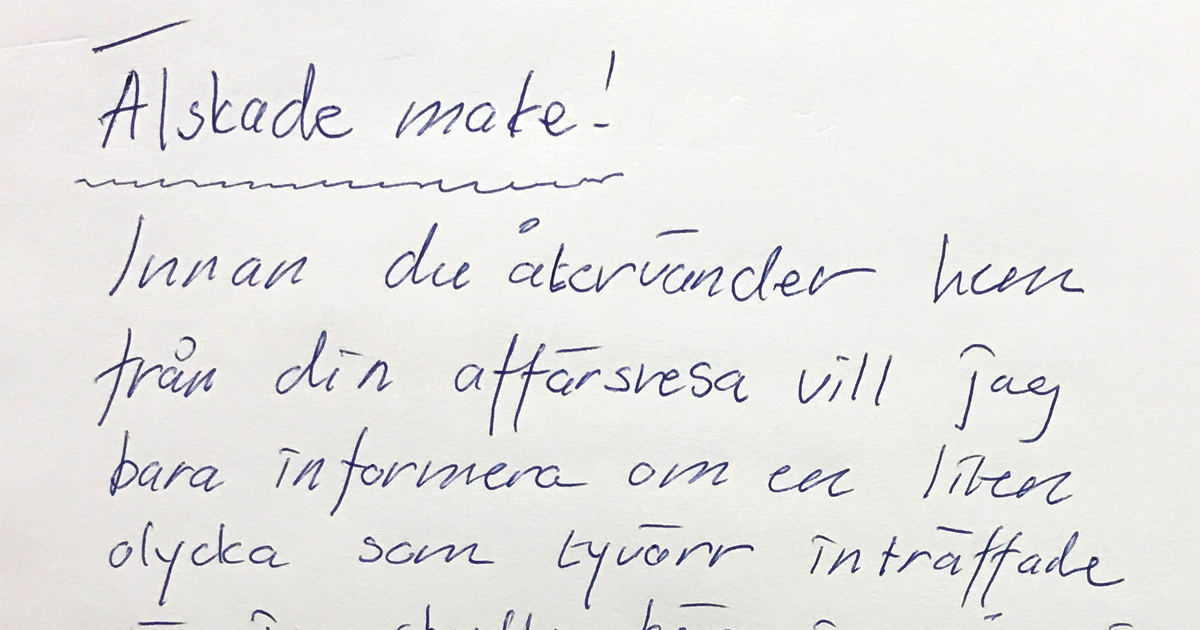 Älskade make!
Innan du återvänder hem
från din affärsresa vill jag
bara informera om en liten
olycka som tyvärr inträffade